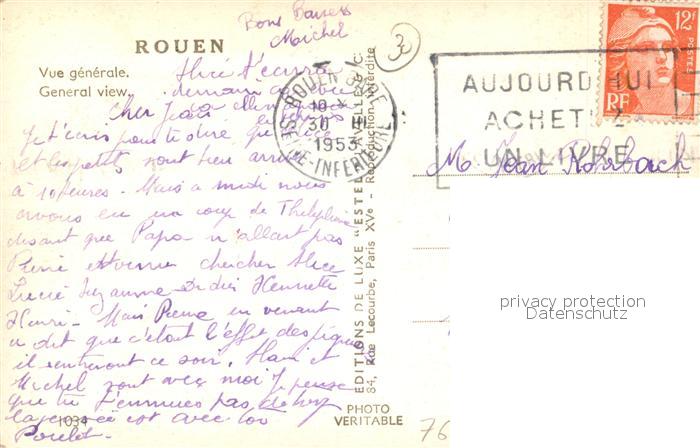 Bons Baisers
Michel
32
ROUEN
Vue générale.
General view.
Alice t'écrira
demain
Cher Jean
Je t'écris pour te dire que Alice
et les petits sont bien arrivés
à 10 heures. Mais a midi nous
avons eu un coup de Théléphone
disant que Papa n'allait pas
Pierre est venu chercher Alice
Lucie Suzanne Dédée Henriette
Henri. Mais Pierre en venant
a dit que c'était l'effet des piqures
il rentreront ce soir. Henri et
Michel sont avec moi Je pense
que tu t'ennuies pas
la journée est avec toi
Poulet
1034
ROUEN GARE
10 H
30 III
1953
SEINE-INFERIEURE
AUJOURD'HUI
ACHETEZ
UN LIVRE
12F
POSTES
RF
M. Jean Rohrbach
EDITIONS DE LUXE "ESTEL"
84, Rue Lecourbe, Paris XVe - Reproduction interdite
PHOTO
VERITABLE
76
privacy protection
Datenschutz